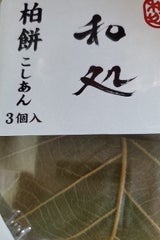 和処
柏餅
こしあん
3個入